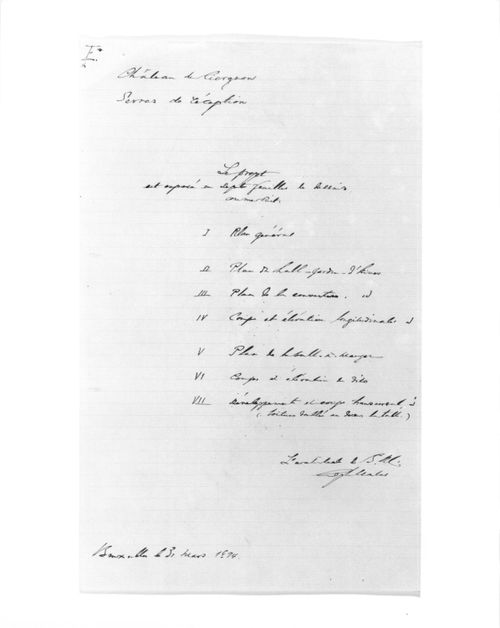 I
Château de Ciergnon
Serres de réception
Le projet
est exposé en sept feuilles de dessins
comme suit.
I Plan général
II Plan du hall - jardin - d'hiver
III Plan de la couverture. id
IV Coupe et élévation longitudinales id
V Plan de la salle-à-manger
VI Coupes et élévation de dito
VII Développement et coupe transversale
(toiture
L'architecte de S. M.
Bruxelles le 31 mars 1894.